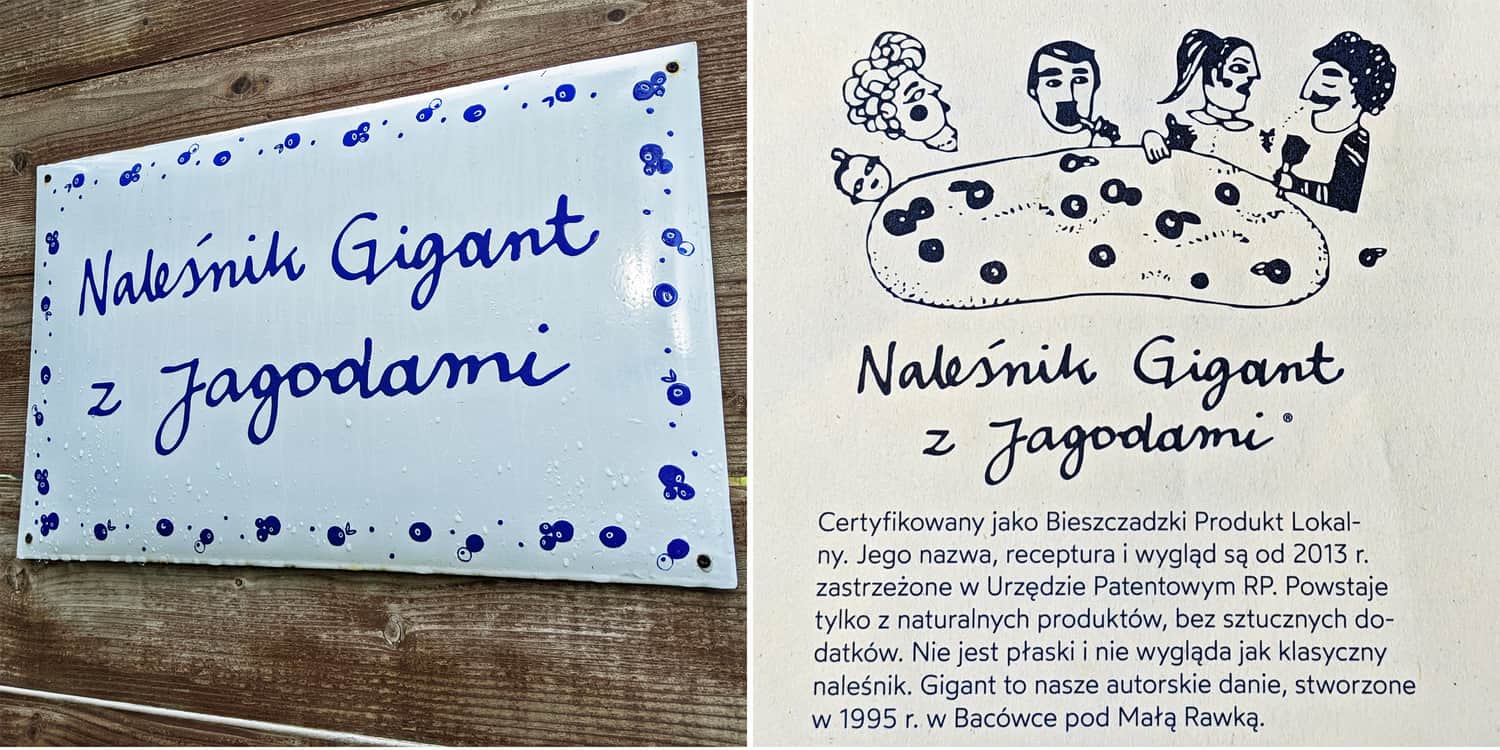 Naleśnik Gigant
z Jagodami
Naleśnik Gigant
z Jagodami®
Certyfikowany jako Bieszczadzki Produkt Lokal-
ny. Jego nazwa, receptura i wygląd są od 2013 r.
zastrzeżone w Urzędzie Patentowym RP. Powstaje
tylko z naturalnych produktów, bez sztucznych do-
datków. Nie jest płaski i nie wygląda jak klasyczny
naleśnik. Gigant to nasze autorskie danie, stworzone
w 1995 r. w Bacówce pod Małą Rawką.